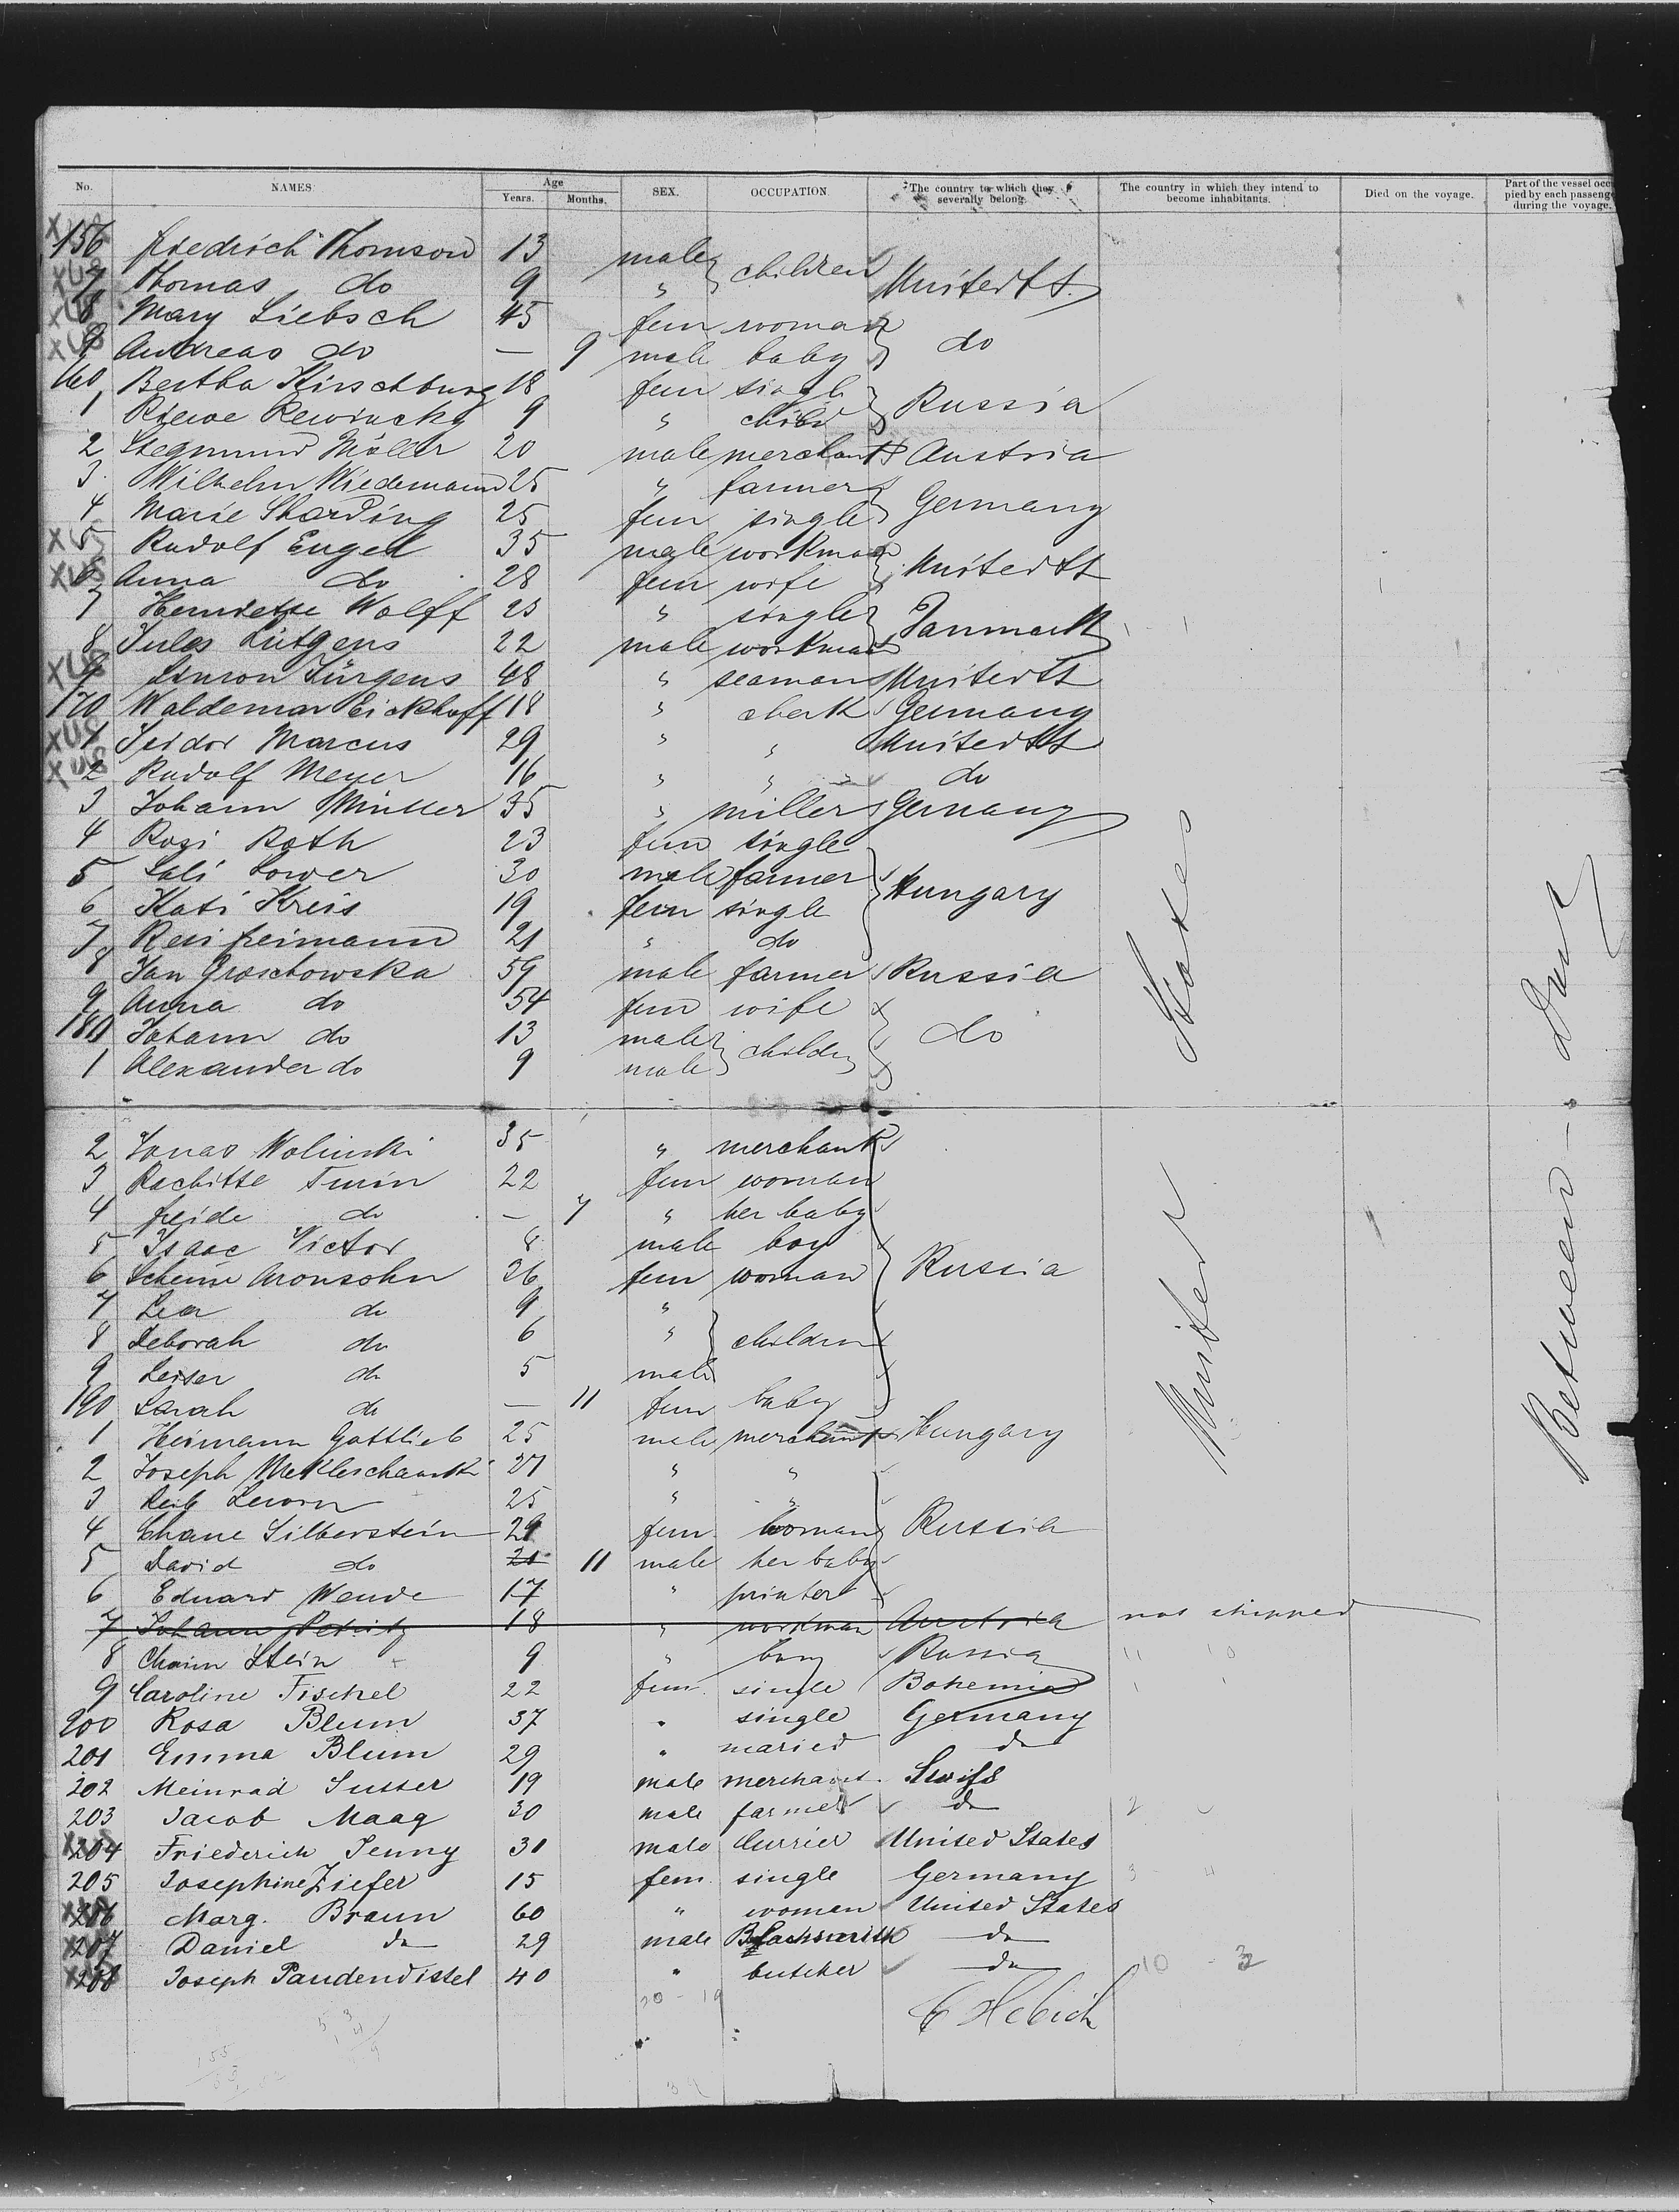 No. NAMES. Age Years. Months. SEX. OCCUPATION. The country to which they severally belong. The country in which they intend to become inhabitants. Died on the voyage. Part of the vessel occupied by each passenger during the voyage.
156 Friedrich Thomson 13 male children United St.
7 Thomas do 9 "
8 Mary Liebsch 45 fem woman do
9 Andreas do — 9 male baby
160 Bertha Hirschburg 18 fem single Russia
1 Riewe Rewincky 9 " child
2 Siegmund Möller 20 male merchant Austria
3 Wilhelm Wiedemann 25 " farmer Germany
4 Marie Sharding 25 fem single
5 Rudolf Engel 35 male workman United St
6 Anna do 28 fem wife
7 Henriette Wolff 25 " single Danmark
8 Jules Lütgens 22 male workman
9 Simon Jürgens 48 " seaman United St
170 Waldemar Eickhoff 18 " clerk Germany
1 Isidor Marcus 29 " " United St
2 Rudolf Meyer 16 " " do
3 Johann Müller 35 " miller Germany
4 Rosi Roth 23 fem single Hungary
5 Sali Lower 30 male farmer
6 Kati Kreis 19 fem single
7 Resi Freimann 21 " do
8 Jan Groschowska 59 male farmer Russia
9 Anna do 54 fem wife do
180 Johann do 13 male children
1 Alexander do 9 male
2 Jonas Wolinski 35 " merchant Russia
3 Rachitte Turin 22 fem woman
4 Freide do — 7 " her baby
5 Isaac Victor 8 male boy
6 Scheine Aronsohn 26 fem woman
7 Lea do 9 "
8 Deborah do 6 " children
9 Leiser do 5 male
190 Sarah do — 11 fem baby
1 Hermann Gottlieb 25 male merchant Hungary
2 Joseph 21 " "
3 Leib 25 " " Russia
4 Chane Silberstein 29 fem woman
5 David do 11 male her baby
6 Eduard Wende 17 " printer
7 Johann 18 " workman Austria not shipped
8 Chaim Stein 9 " boy Russia
9 Caroline Fischel 22 fem single Bohemia
200 Rosa Blum 37 " single Germany
201 Emma Blum 29 " maried do
202 Meinrad Sutter 19 male merchant Swiss
203 Jacob Maag 30 male farmer do
204 Friederich Jenny 30 male Currier United States
205 Josephine Ziefer 15 fem single Germany
206 Marg. Braun 60 " woman United States
207 Daniel do 29 male Blacksmith do
208 Joseph Paudendistel 40 " butcher do
United States
Between-Deck